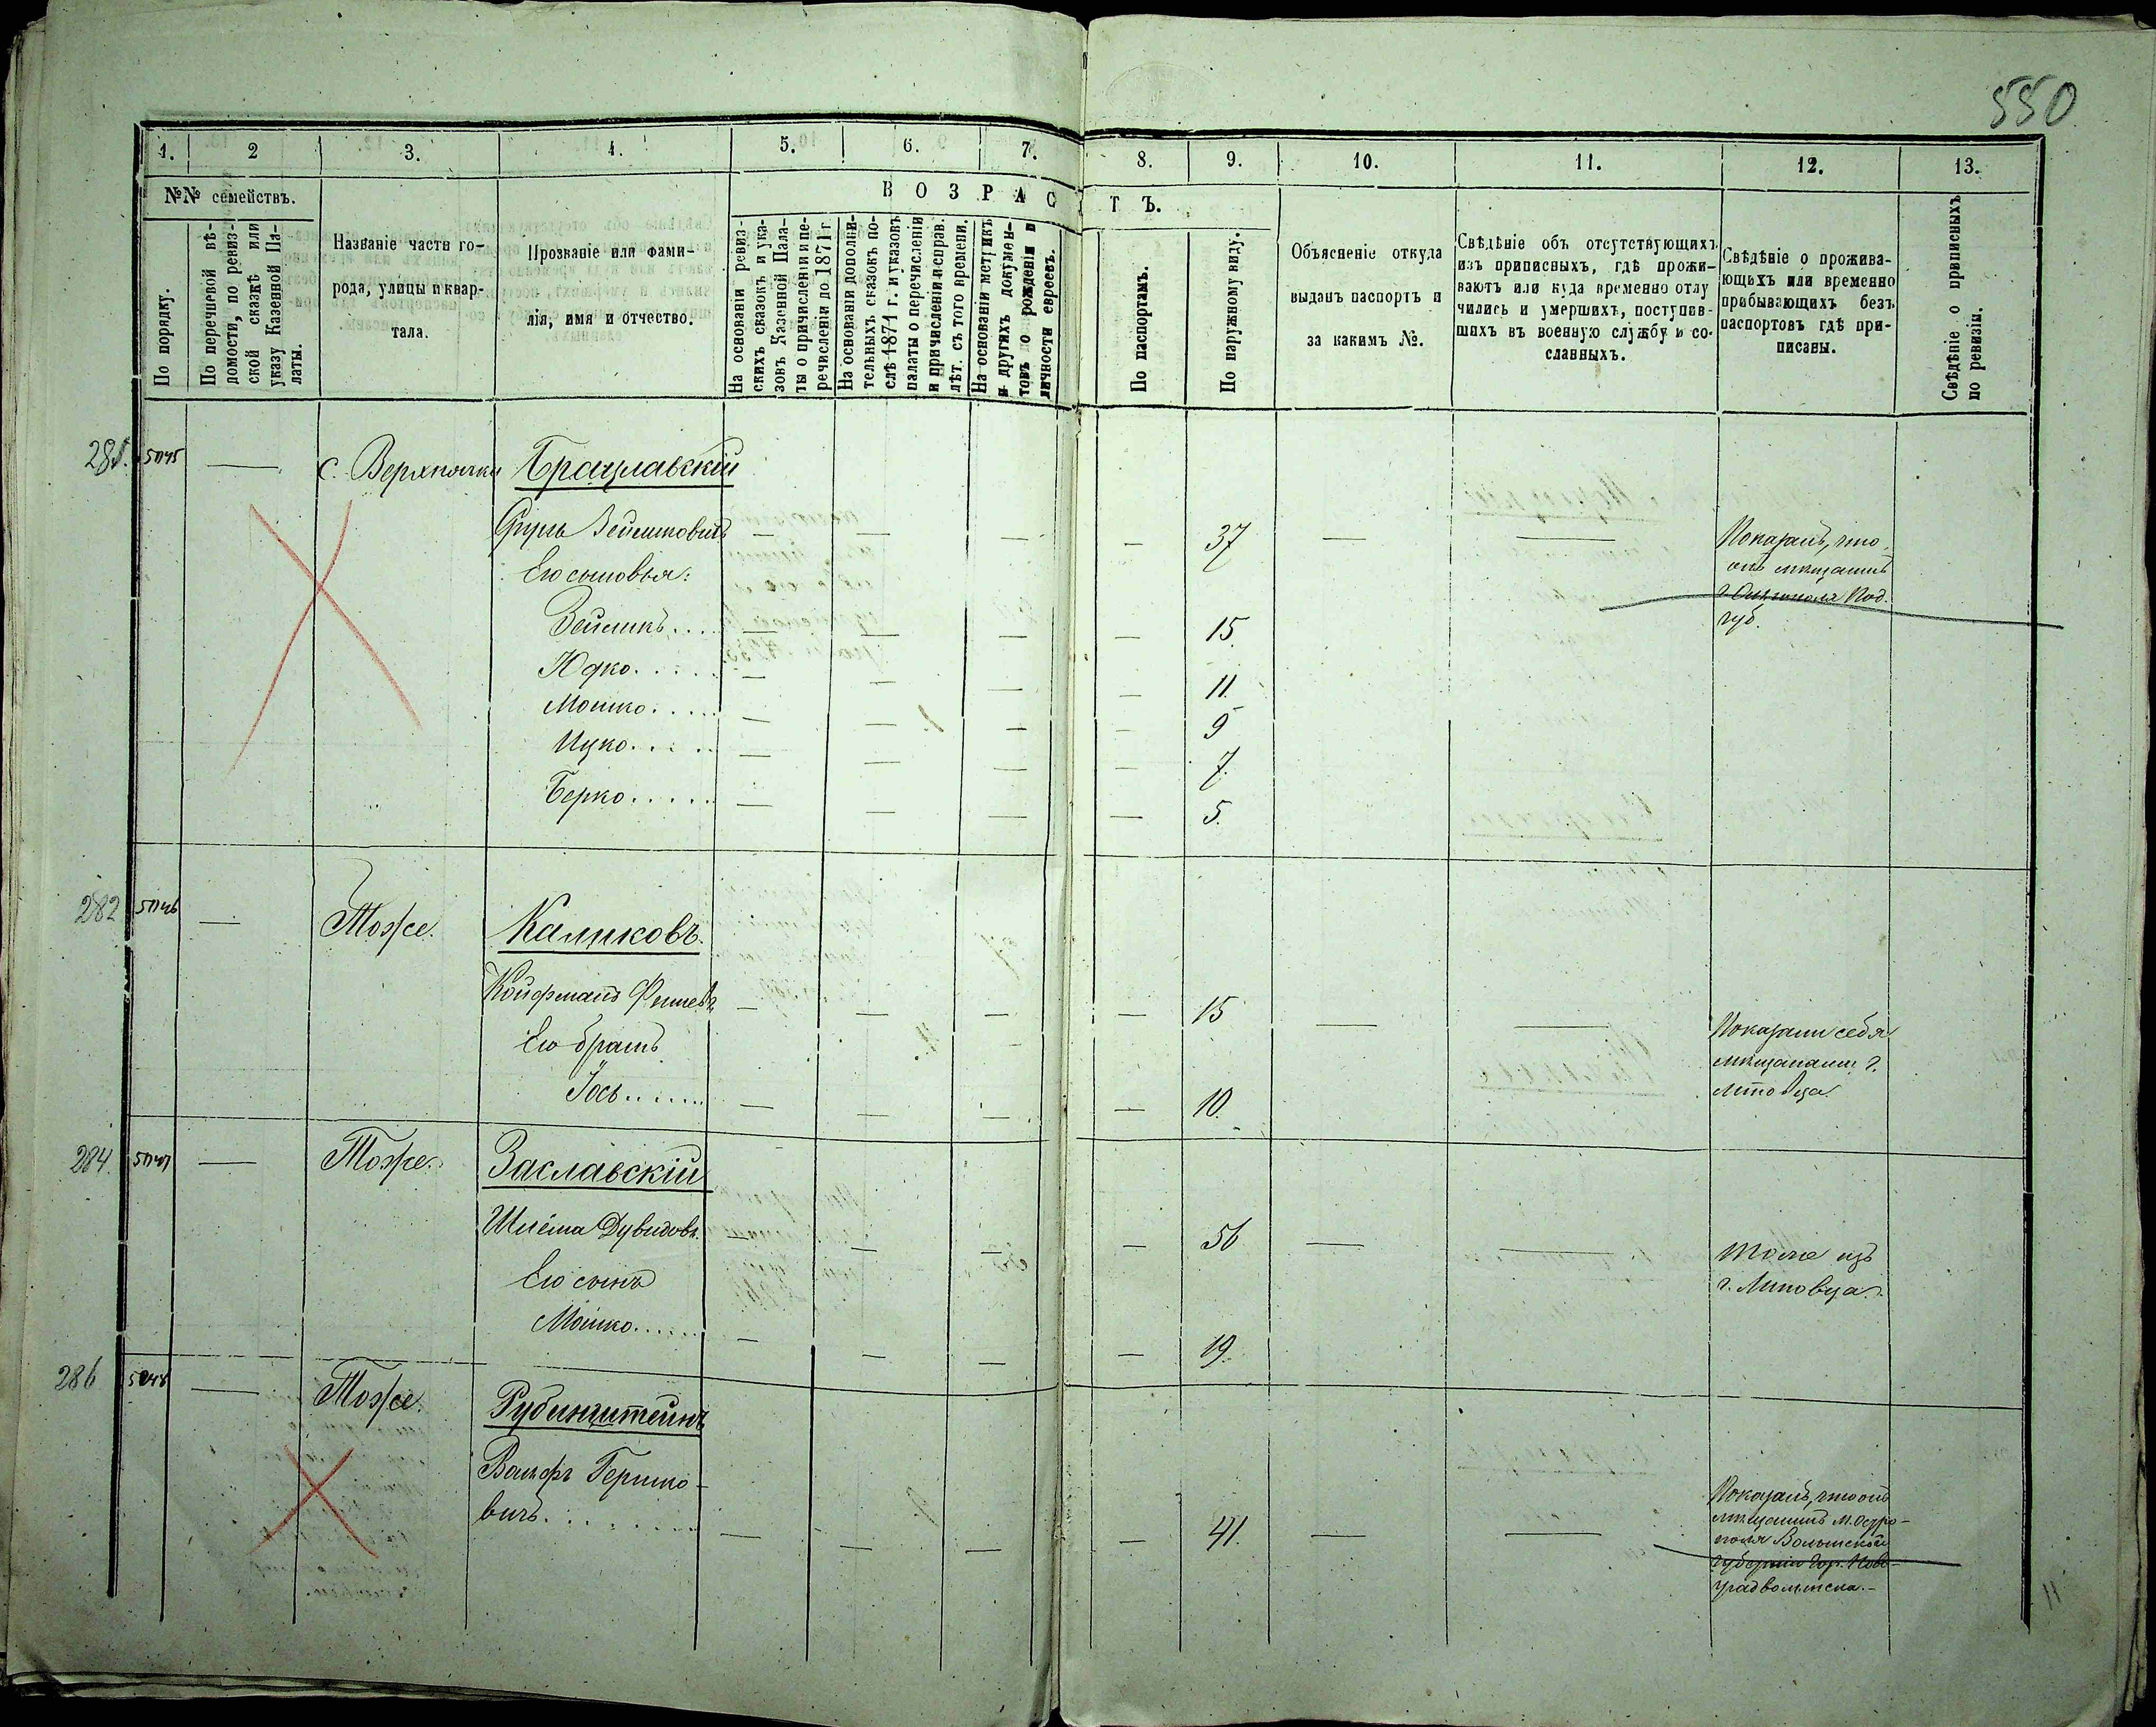 550
1. 2 3. 4. 5. 6. 7. 8. 9. 10. 11. 12. 13.
№№ семействъ.
ВОЗРАСТЪ.
По порядку.
По перечневой вѣ-
домости, по ревиз-
ской сказкѣ или
указу Казенной Па-
латы.
Названіе части го-
рода, улицы и квар-
тала.
Прозваніе или фами-
лія, имя и отчество.
На основаніи ревиз-
скихъ сказокъ и ука-
зовъ Казенной Пала-
ты о причисленіи и пе-
речисленіи до 1871 г.
На основаніи дополни-
тельныхъ сказокъ по-
слѣ 1871 г. и указовъ
палаты о перечисленіи
и причисленіи исправ.
лѣт. съ того времени.
На основаніи метрикъ
и другихъ докумен-
товъ о рожденіи и
личности евреевъ.
По паспортамъ.
По наружному виду.
Объясненіе откуда
выданъ паспортъ и
за какимъ №.
Свѣдѣніе объ отсутствующихъ
изъ приписныхъ, гдѣ прожи-
ваютъ или куда временно отлу
чились и умершихъ, поступив-
шихъ въ военную службу и со-
сланныхъ.
Свѣдѣніе о прожива-
ющихъ или временно
прибывающихъ безъ
паспортовъ гдѣ при-
писаны.
Свѣдѣніе о приписныхъ
по ревизіи.
281. 5045 — с. Верхнячка Брацлавскій
Зейликовичъ — — — — 37 — —
Показалъ, что
онъ мѣщанинъ
Под.
губ.
Его сыновья:
Зейликъ.... — — — — 15.
Юдко..... — — — — 11.
Мошко..... — — — — 9
Ицко..... — — — — 7.
Берко..... — — — — 5.
282 5046 — Тоже. Каликовъ.
Койфманъ — — — — 15 — —
Показали себя
мѣщанами г.
Липовца
Его братъ
Іось...... — — — — 10.
284. 5047 — Тоже. Заславскій
Шлёма Дувидовъ. — — — — 56 — —
тоже изъ
г. Липовца.
Его сынъ
Мошко...... — — — — 19.
286 5048 — Тоже. Рубинштейнъ
Вольфъ Гершко-
вичъ. — — — — 41. — —
Показалъ, что онъ
мѣщанинъ м. Остро-
поля Волынской
губерніи гор. Ново-
градволынска.-